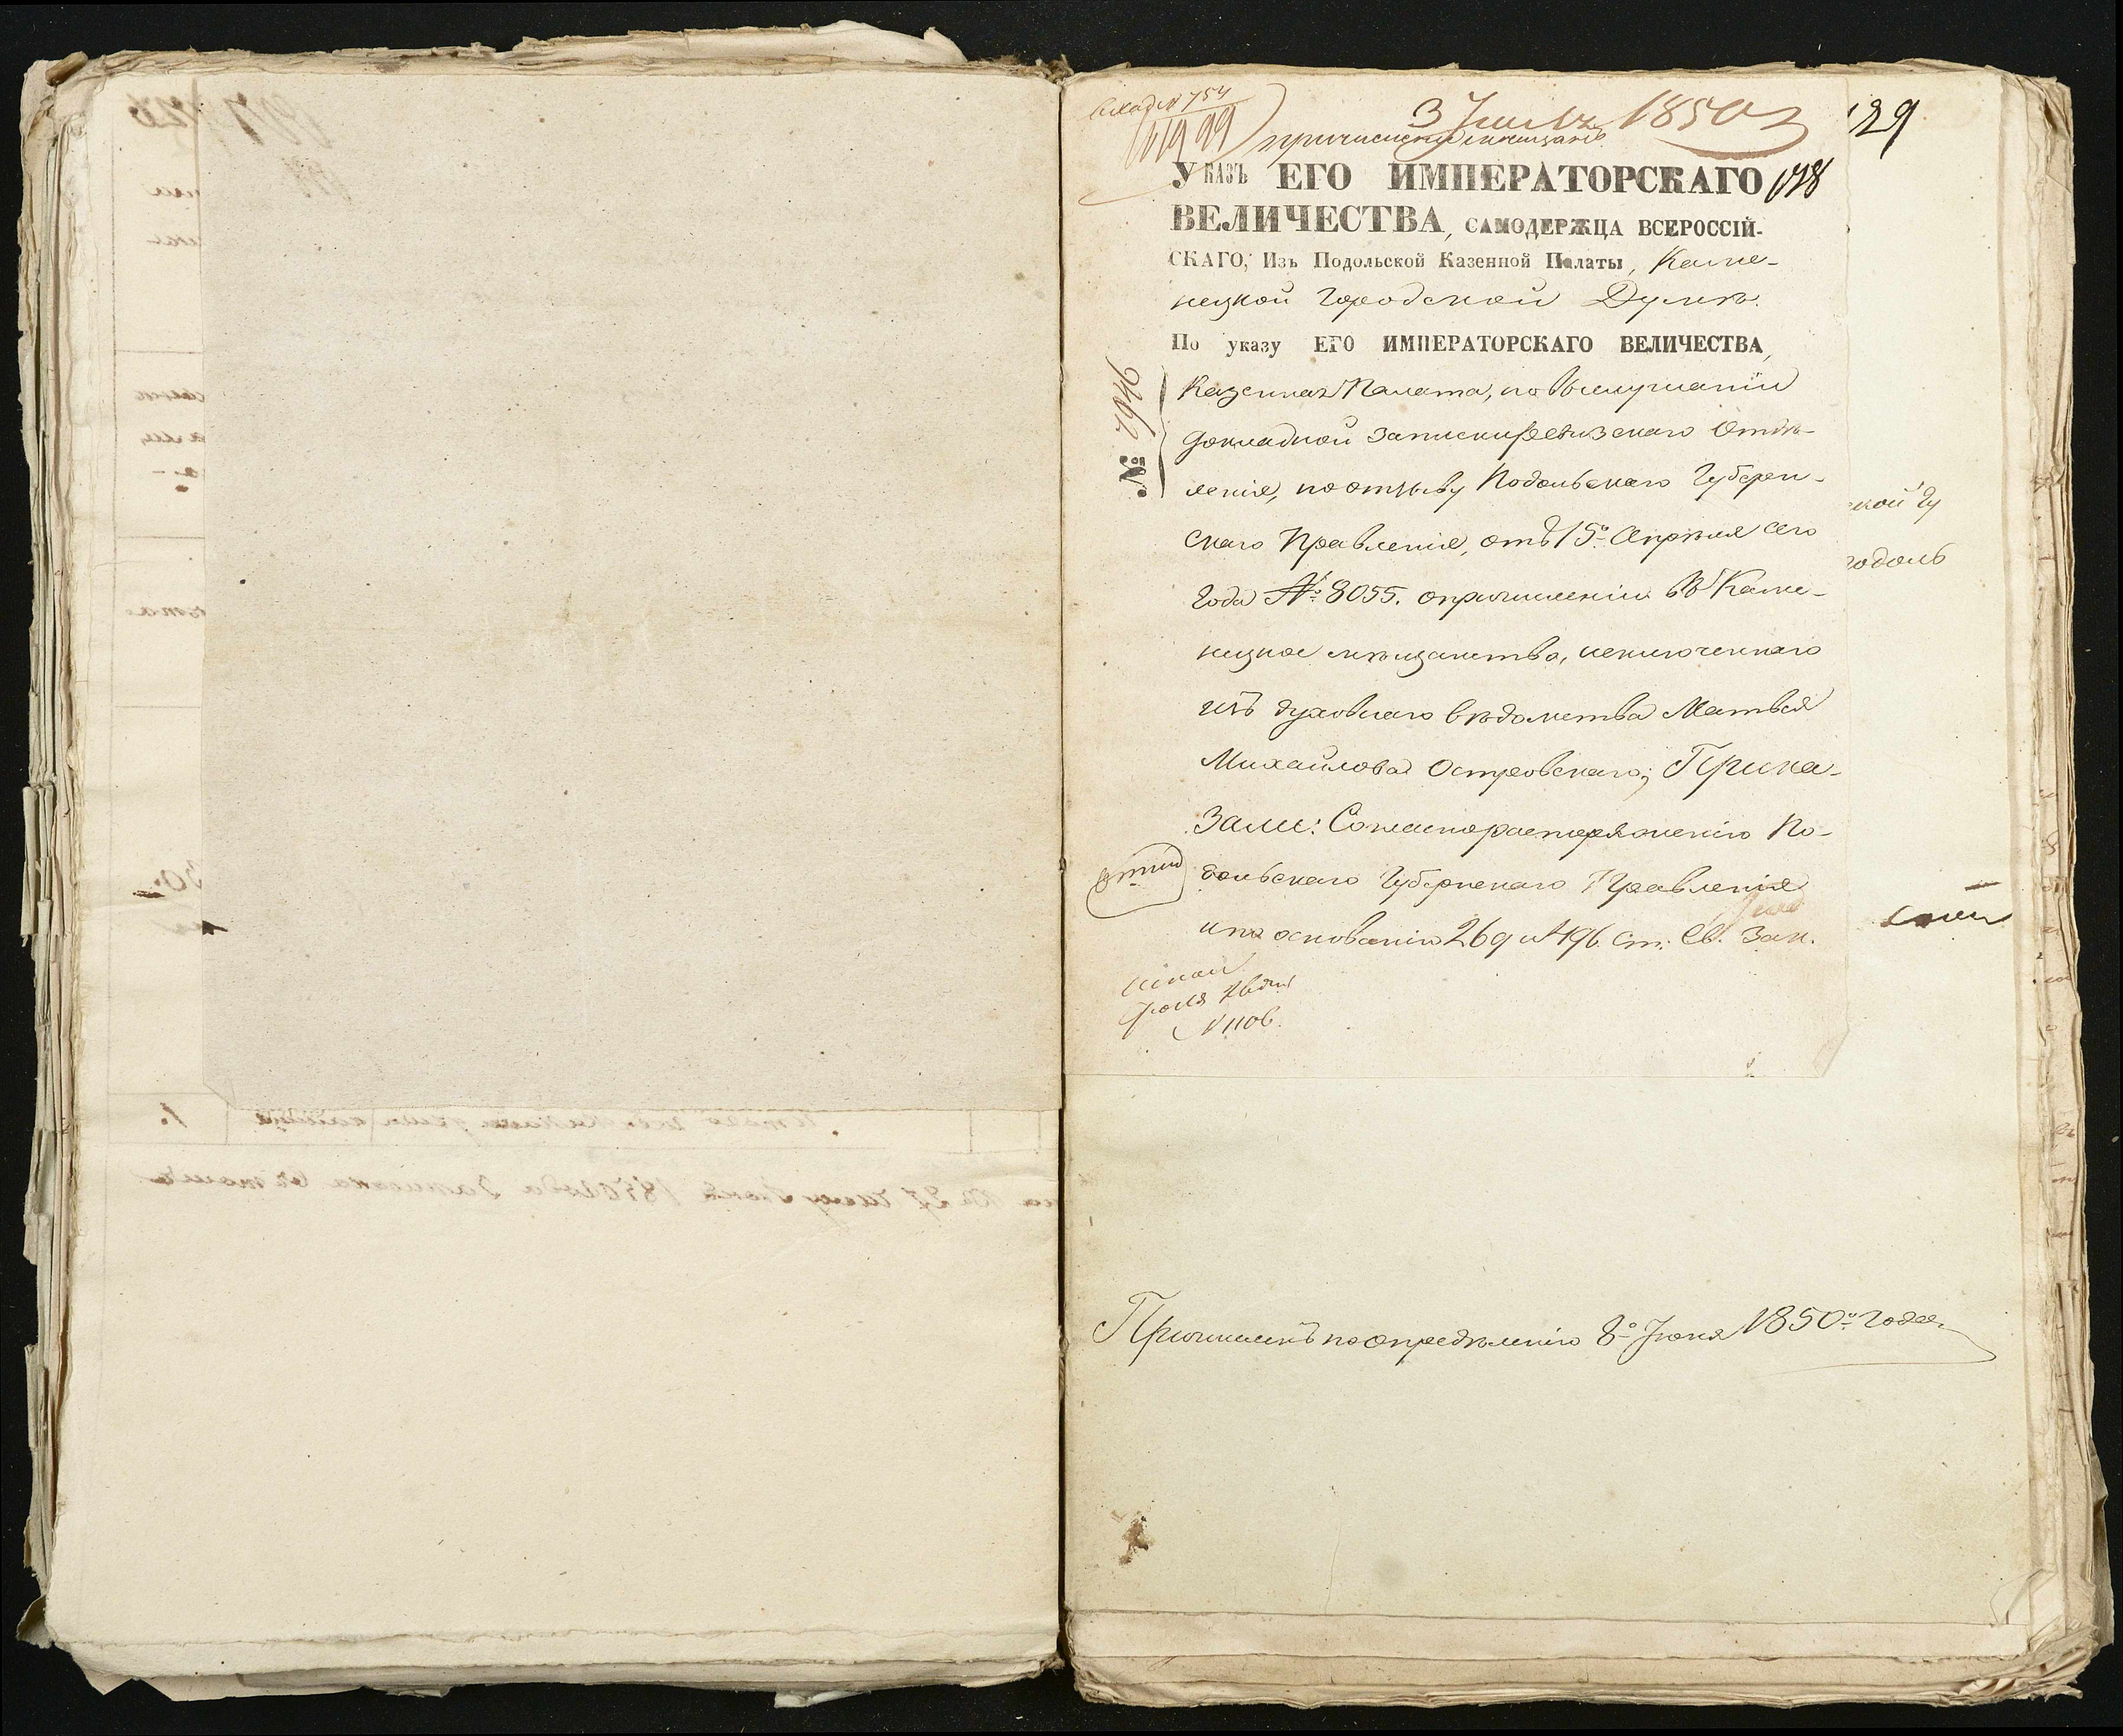 Вход. № 754
3 Іюля 1850 г.
129
128
Указъ ЕГО ИМПЕРАТОРСКАГО
ВЕЛИЧЕСТВА, САМОДЕРЖЦА ВСЕРОССІЙ-
СКАГО, Изъ Подольской Казенной Палаты, Каме-
нецкой Городской Думѣ.
По указу ЕГО ИМПЕРАТОРСКАГО ВЕЛИЧЕСТВА,
№ 7946
Казенная Палата, по выслушаніи
докладной записки Ревизскаго Отдѣ-
ленія, по отзыву Подольскаго Губерн-
скаго Правленія, отъ 15º Апрѣля сего
года № 8055. о причисленіи въ Каме-
нецкое мѣщанство, исключеннаго
изъ духовнаго вѣдомства Матвея
Михайлова Островскаго; Прика-
зали: Согласно распоряженію По-
дольскаго Губернскаго Правленія
и на основаніи 269 и 496 ст: Св. Зак.
Іюля
№ 1106.
ской Гу
Подоль
Причисленъ по опредѣленію 8º Іюня 1850º года.